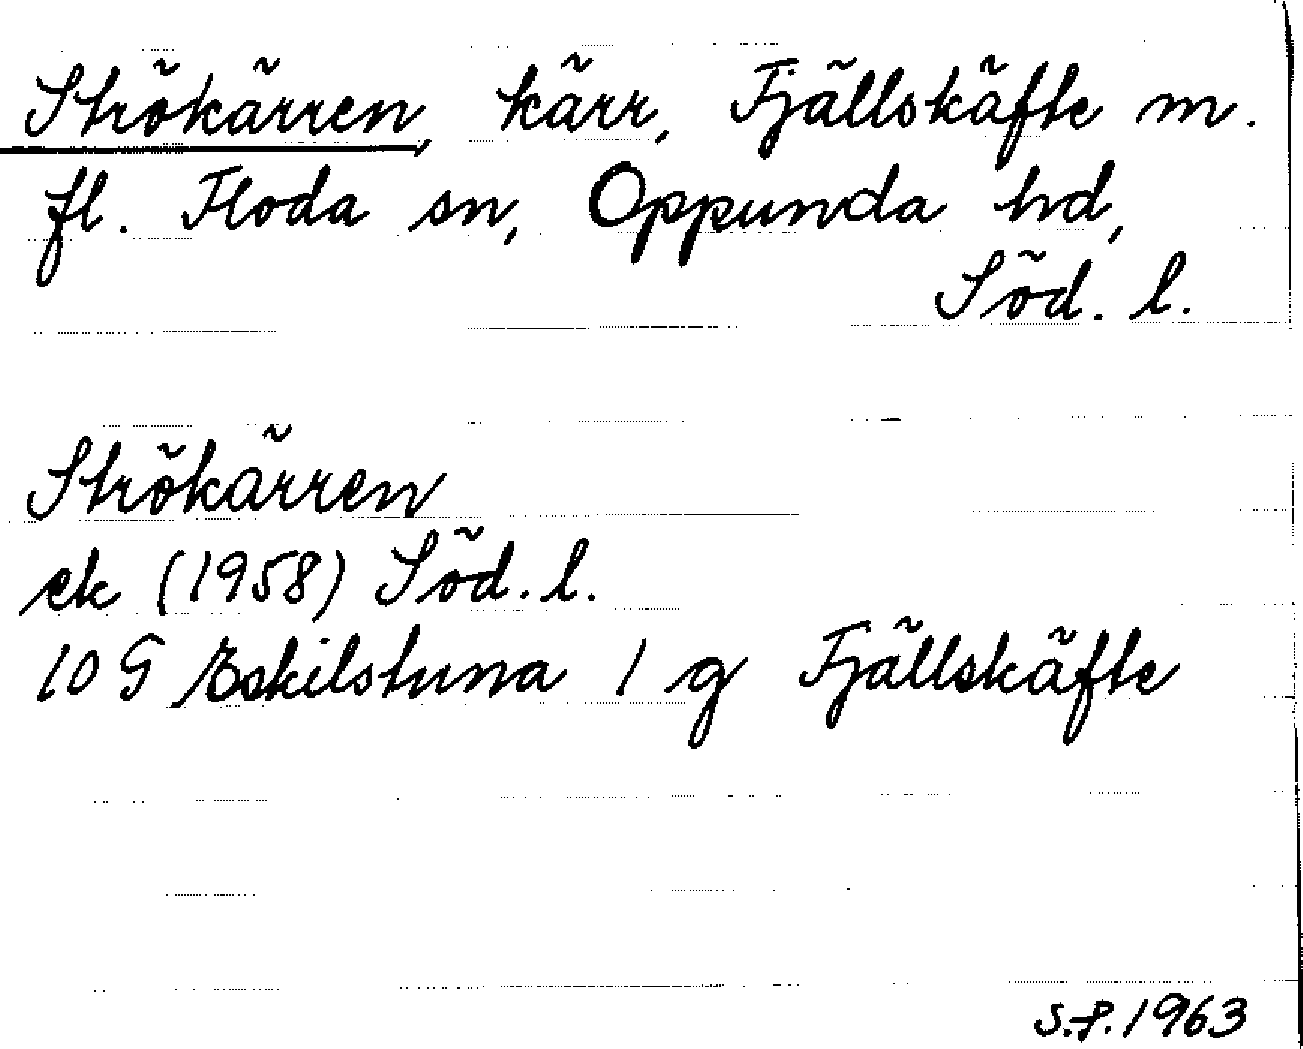 Strökärren, kärr, Fjällskäfte m.
fl. Floda sn, Oppunda hd,
Söd. l.
Strökärren
ek (1958) Söd. l.
10 G Eskilstuna 1 g Fjällskäfte
S.P. 1963